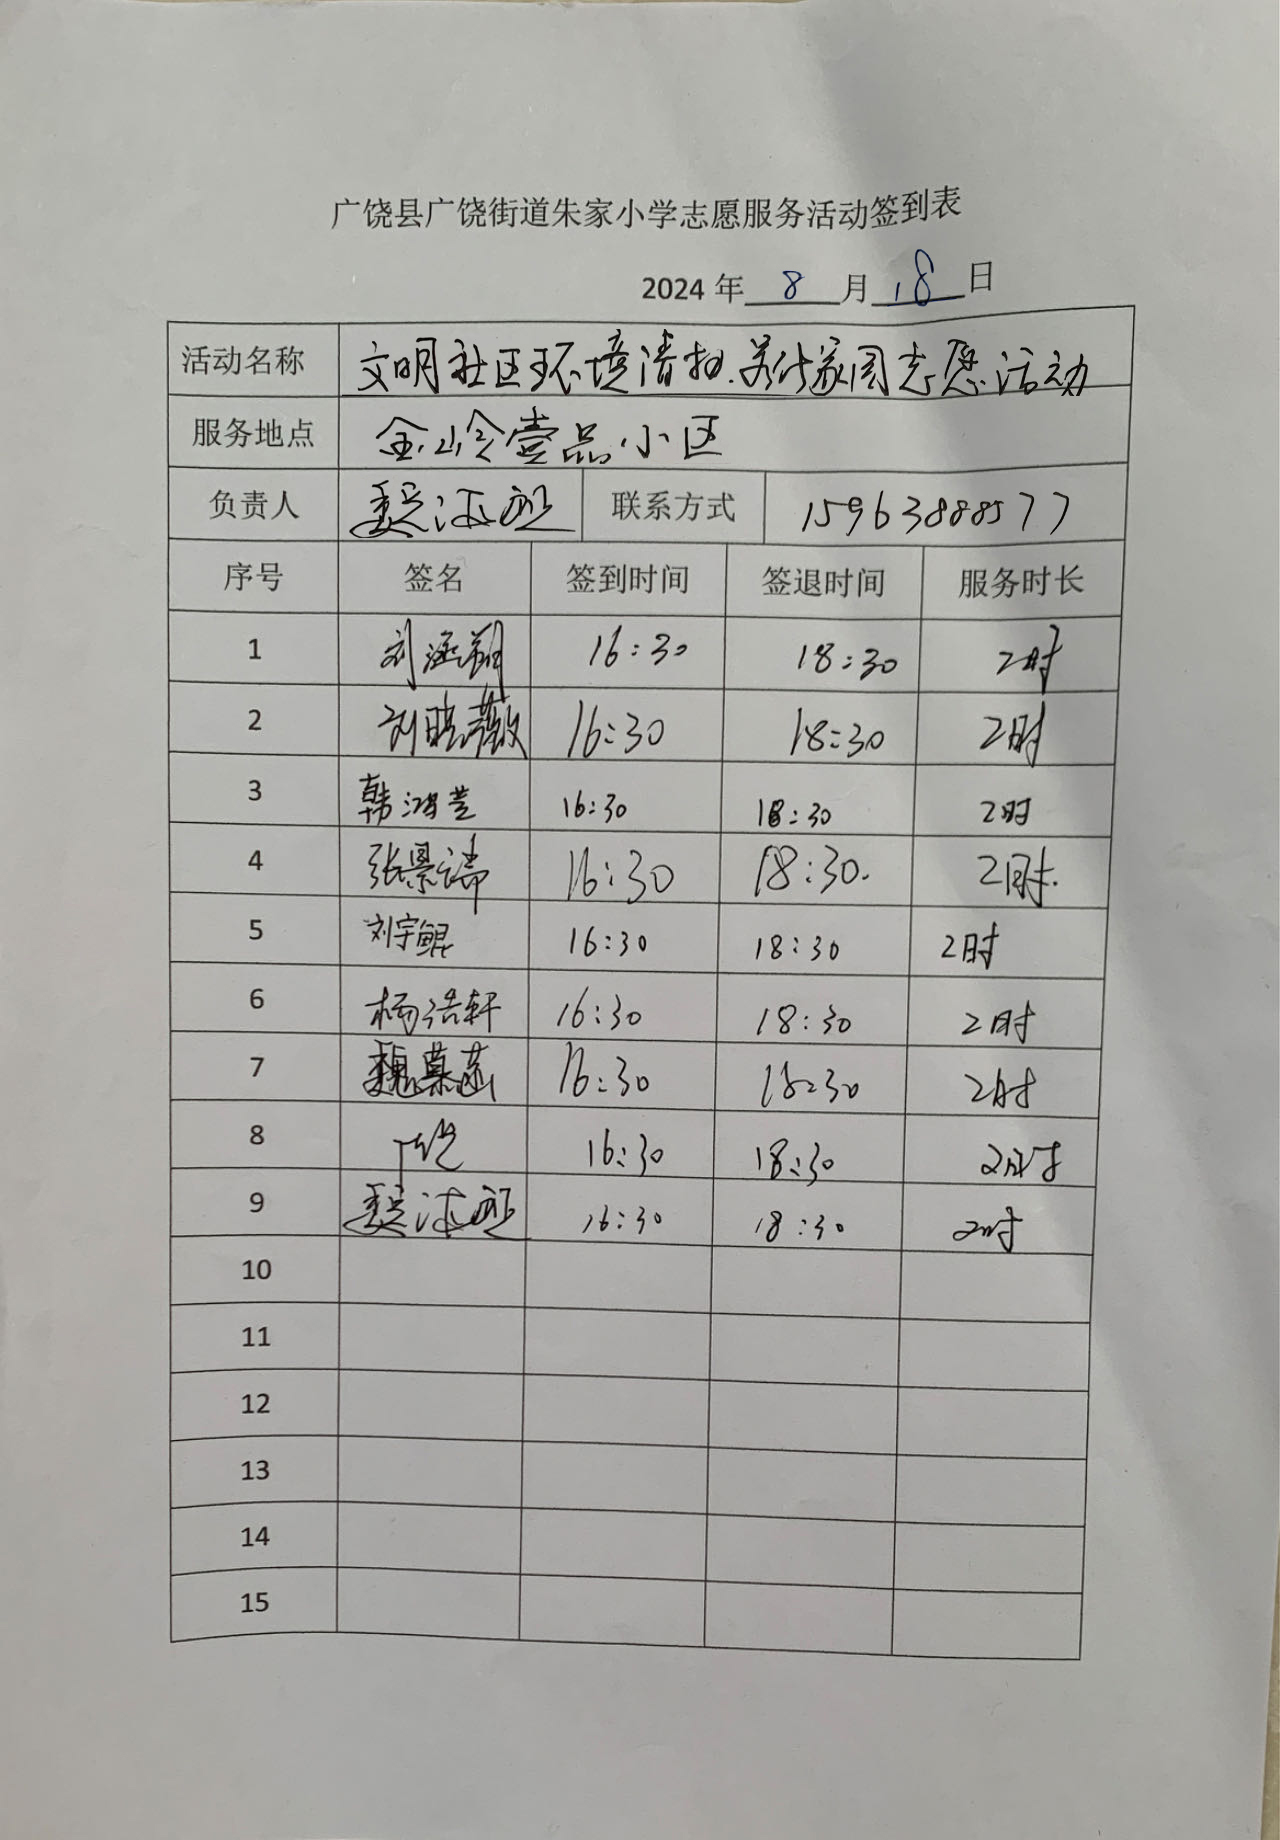 广饶县广饶街道朱家小学志愿服务活动签到表
2024 年 8 月 18 日
活动名称 文明社区环境清扫.美化家园志愿活动
服务地点 金岭壹品小区
负责人 魏 联系方式 15963888577
序号 签名 签到时间 签退时间 服务时长
1 刘涵 16:30 18:30 2时
2 刘晓薇 16:30 18:30 2时
3 韩鸿 16:30 18:30 2时
4 张景 16:30 18:30. 2时.
5 刘宇鲲 16:30 18:30 2时
6 杨浩轩 16:30 18:30 2时
7 魏慕菡 16:30 18:30 2时
8 16:30 18:30 2时
9 魏 16:30 18:30 2时
10
11
12
13
14
15